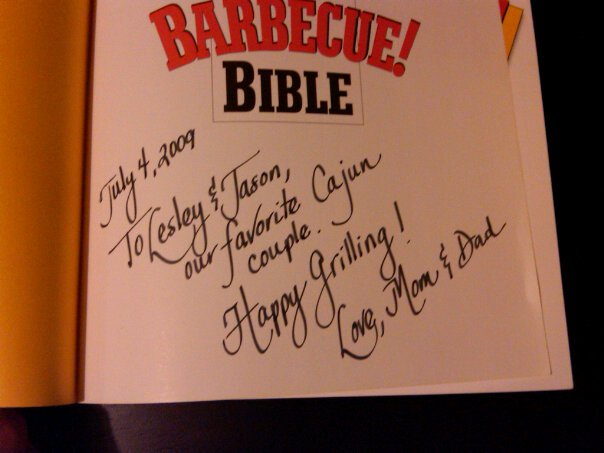 BARBECUE!
BIBLE
July 4, 2009
To Lesley & Jason,
our favorite Cajun
couple.
Happy Grilling!
Love, Mom & Dad